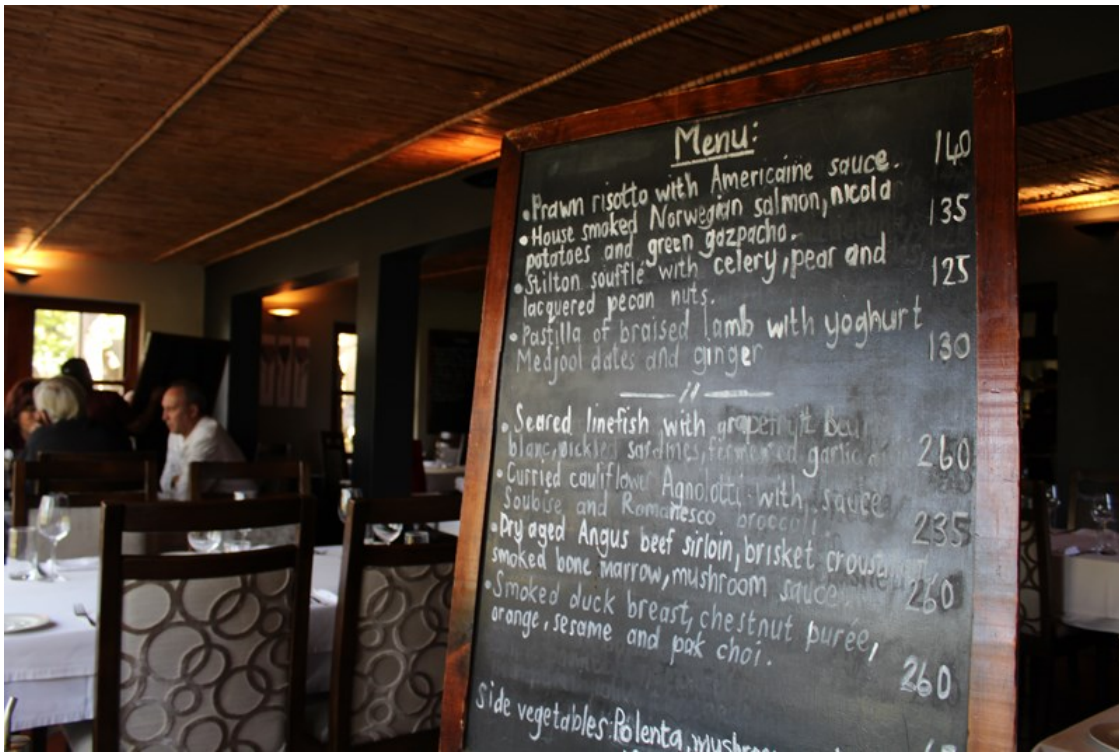 Menu:
• Prawn risotto with Americaine sauce. 140
• House smoked Norwegian salmon, nicola
potatoes and green gazpacho. 135
• Stilton soufflé with celery, pear and
lacquered pecan nuts. 125
• Pastilla of braised lamb with yoghurt
Medjool dates and ginger 130
• Seared linefish with grapefruit Beur
blanc, pickled sardines, fermented garlic 260
• Curried cauliflower Agnolotti with sauce
Soubise and Romanesco broccoli 235
• Dry aged Angus beef sirloin, brisket
smoked bone marrow, mushroom sauce 260
• Smoked duck breast, chestnut purée,
orange, sesame and pak choi. 260
Side vegetables: Polenta,